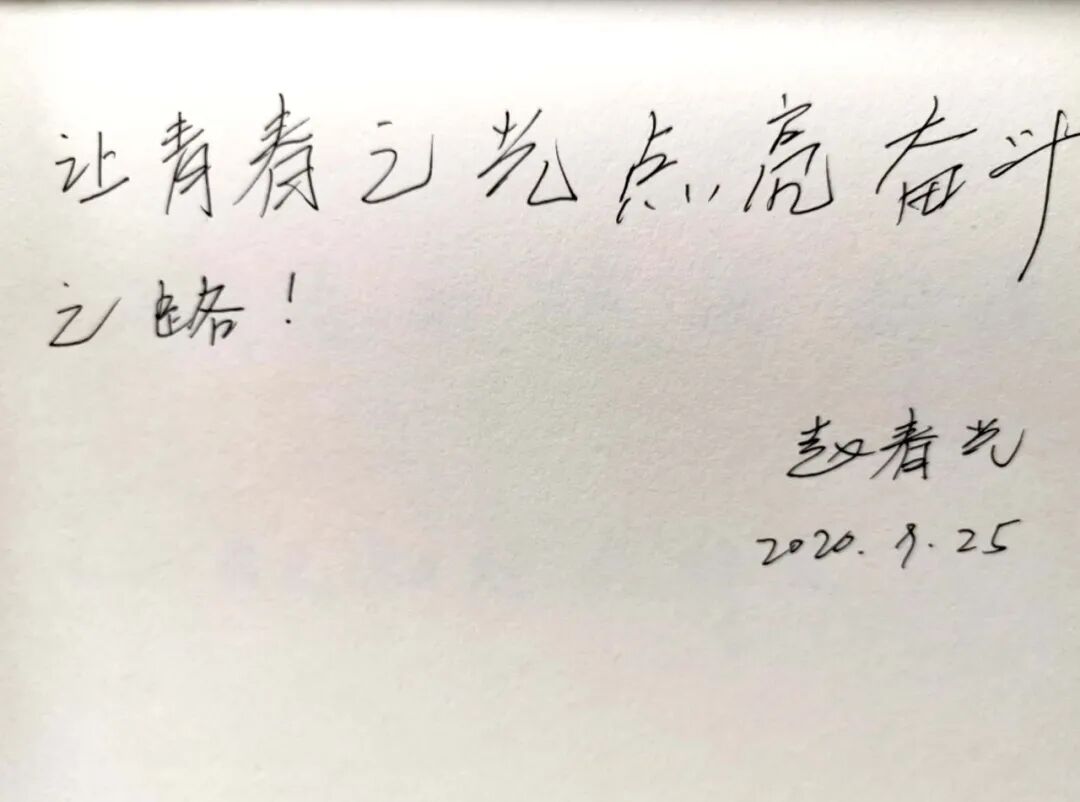 让青春之光点亮奋斗
之路！
赵春光
2020.9.25